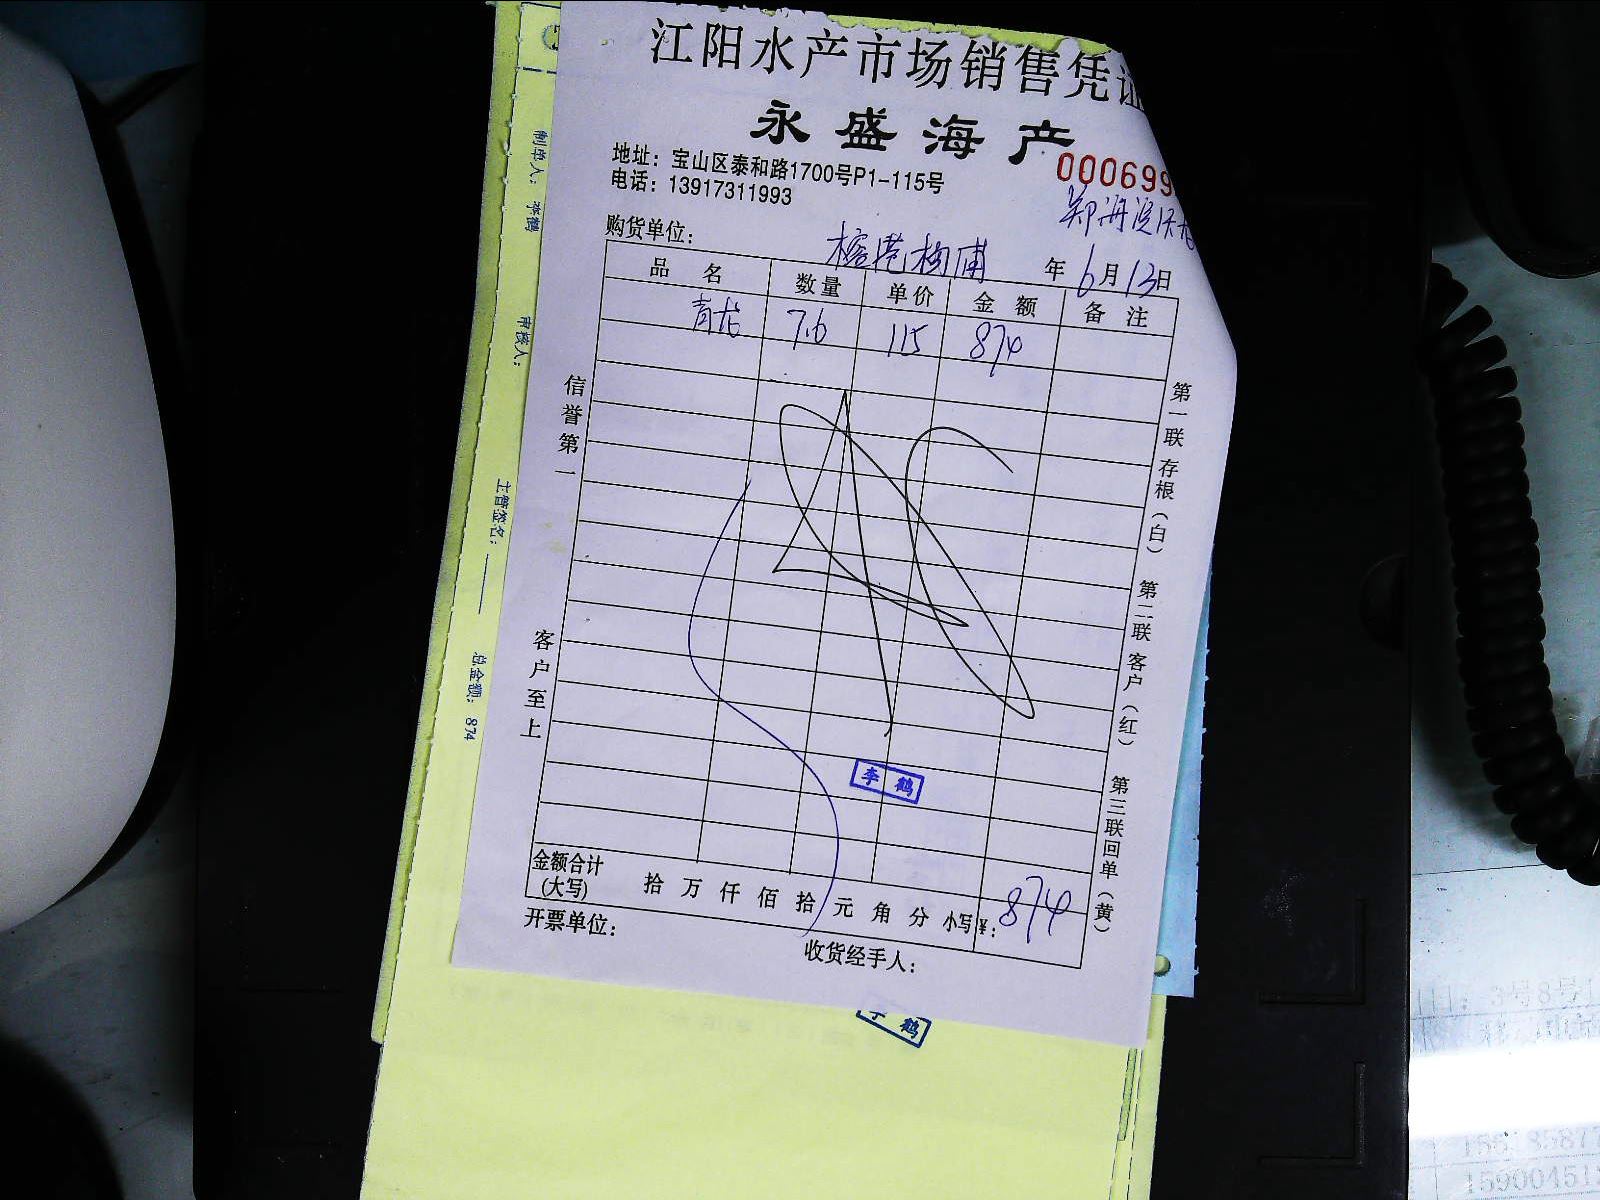 江阳水产市场销售凭证
永盛海产
000699
地址：宝山区泰和路1700号P1-115号
电话：13917311993
购货单位：
年6月13日
品名 数量 单价 金额 备注
青龙 7.6 115 874
信誉第一
客户至上
第一联 存根（白） 第二联 客户（红） 第三联回单（黄）
李鹤
金额合计（大写） 拾 万 仟 佰 拾 元 角 分 小写¥：874
开票单位：
收货经手人：
李鹤
制单人：李鹤
审核人：
主管签名：
总金额：874